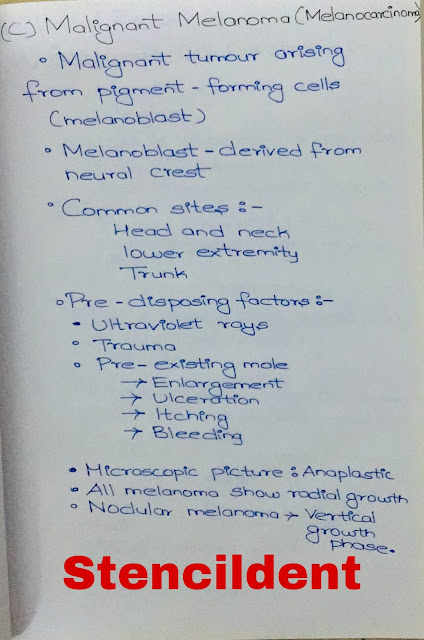 (C) Malignant Melanoma (Melanocarcinoma)
• Malignant tumour arising
from pigment - forming cells
(melanoblast)
• Melanoblast - derived from
neural crest
• Common sites :-
Head and neck
lower extremity
Trunk
• Pre - disposing factors :-
• Ultraviolet rays
• Trauma
• Pre - existing mole
→ Enlargement
→ Ulceration
→ Itching
→ Bleeding
• Microscopic picture : Anaplastic
• All melanoma show radial growth
• Nodular melanoma → Vertical
growth
phase.
Stencildent